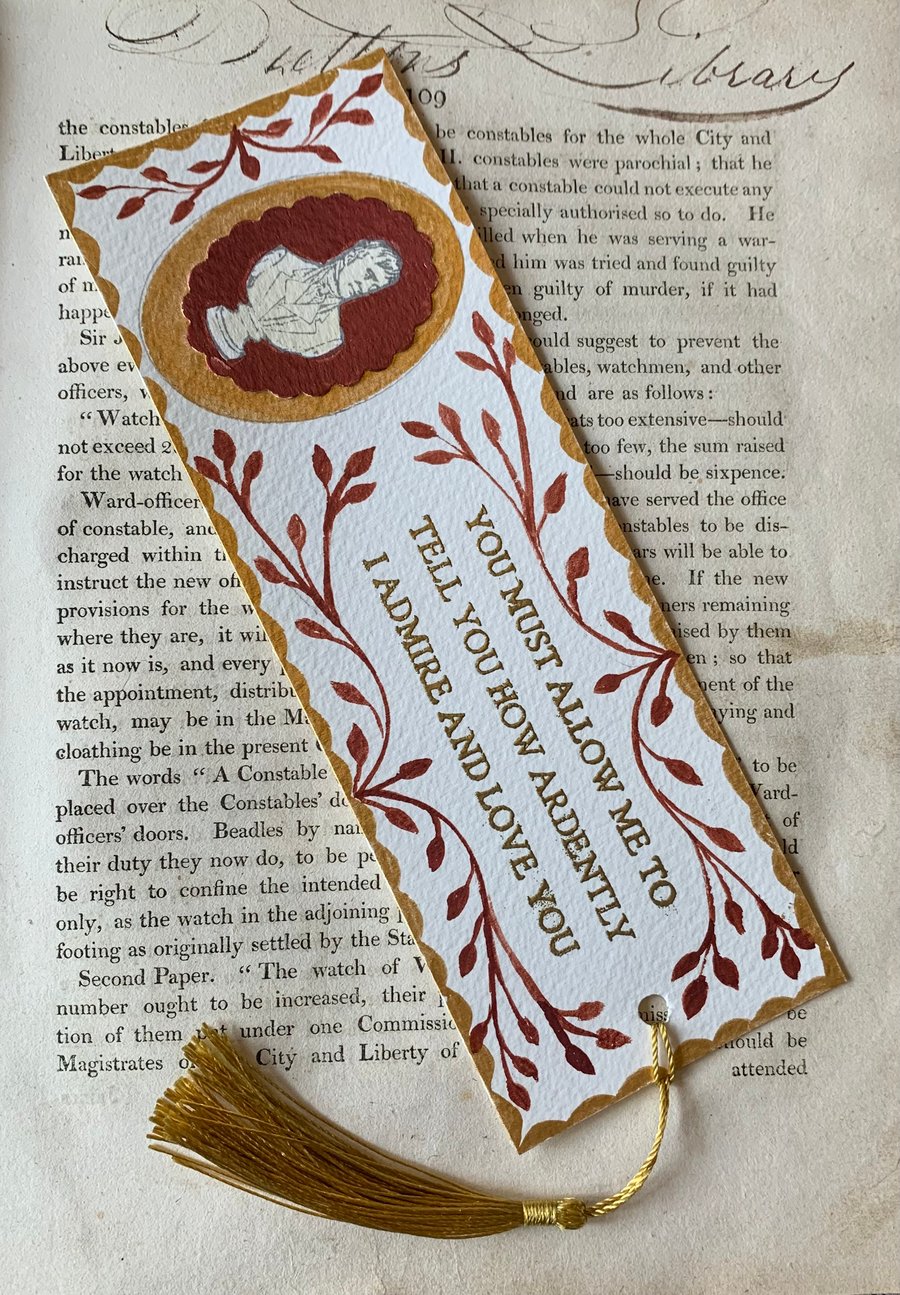 Library
109
the constables be constables for the whole City and
II. constables were parochial ; that he
that a constable could not execute any
specially authorised so to do. He
when he was serving a war-
him was tried and found guilty
of guilty of murder, if it had
Sir suggest to prevent the
above watchmen, and other
officers, are as follows :
“ Watch too extensive—should
not exceed too few, the sum raised
for the watch —should be sixpence.
Ward-officer have served the office
of constable, and to be dis-
charged within will be able to
instruct the new If the new
provisions for the remaining
where they are, it by them
as it now is, and every ; so that
the appointment, of the
watch, may be in the and
cloathing be in the present
The words “ A Constable to be
placed over the Constables' Ward-
officers' doors. Beadles by of
their duty they now do, to be
be right to confine the intended
only, as the watch in the adjoining
footing as originally settled by the
Second Paper. “ The watch of
number ought to be increased, their be
tion of them put under one should be
Magistrates City and Liberty of attended
YOU MUST ALLOW ME TO
TELL YOU HOW ARDENTLY
I ADMIRE AND LOVE YOU